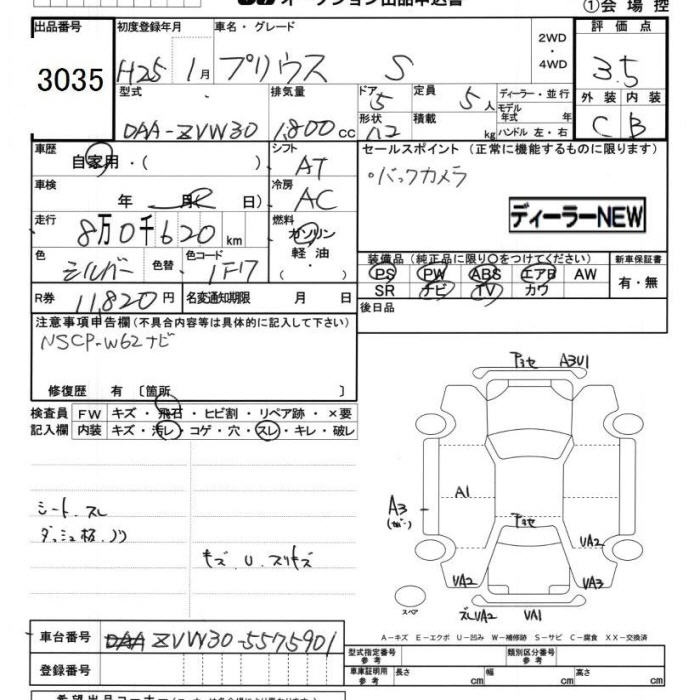 ①会場控
出品番号
3035
初度登録年月
H25 1月
車名・グレード
プリウス S
2WD
・
4WD
評価点
3.5
外装 内装
C B
型式
DAA-ZVW30
排気量
1,800 cc
ドア 5
形状
定員 5人
積載 kg
ディーラー・並行
モデル年式 年
ハンドル 左・右
車歴
自家用・( )
シフト
AT
セールスポイント (正常に機能するものに限ります)
・バックカメラ
ディーラーNEW
車検
年 月( 日)
冷房
AC
走行
8万0千620km
燃料
ガソリン
軽油
・( )
色
シルバー
色替
色コード
1F7
R券 11,820円
名変通知期限 月 日
装備品 (純正品に限り○をつけてください)
PS PW ABS エアB AW
SR ナビ TV カワ
新車保証書
有・無
後日品
注意事項申告欄(不具合内容等は具体的に記入して下さい)
NSCP-W62ナビ
修復歴 有 〔箇所 〕
検査員 FW キズ・飛石・ヒビ割・リペア跡・×要
記入欄 内装 キズ・汚レ・コゲ・穴・スレ・キレ・破レ
シート、スレ
ダッシュ板、ノリ
キズ、U、スリキズ
アトセ A3U1
A1
A3
アトセ
UA2
UA2
UA3
スペア
ズレUA2 UA1
A-キズ E-エクボ U-凹み W-補修跡 S-サビ C-腐食 XX-交換済
車台番号 ZVW30-5575901
登録番号
型式指定番号
参考
類別区分番号
参考
車庫証明用
参考
長さ cm 幅 cm 高さ cm